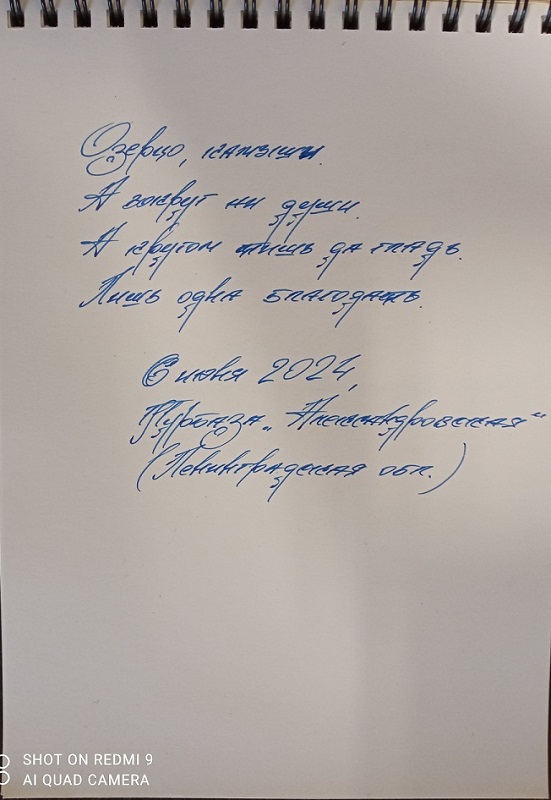 Озерцо, камыши.
А вокруг ни души.
А кругом тишь да гладь.
Лишь одна благодать.
6 июня 2024,
Турбаза „Александровская“
(Ленинградская обл.)
SHOT ON REDMI 9
AI QUAD CAMERA